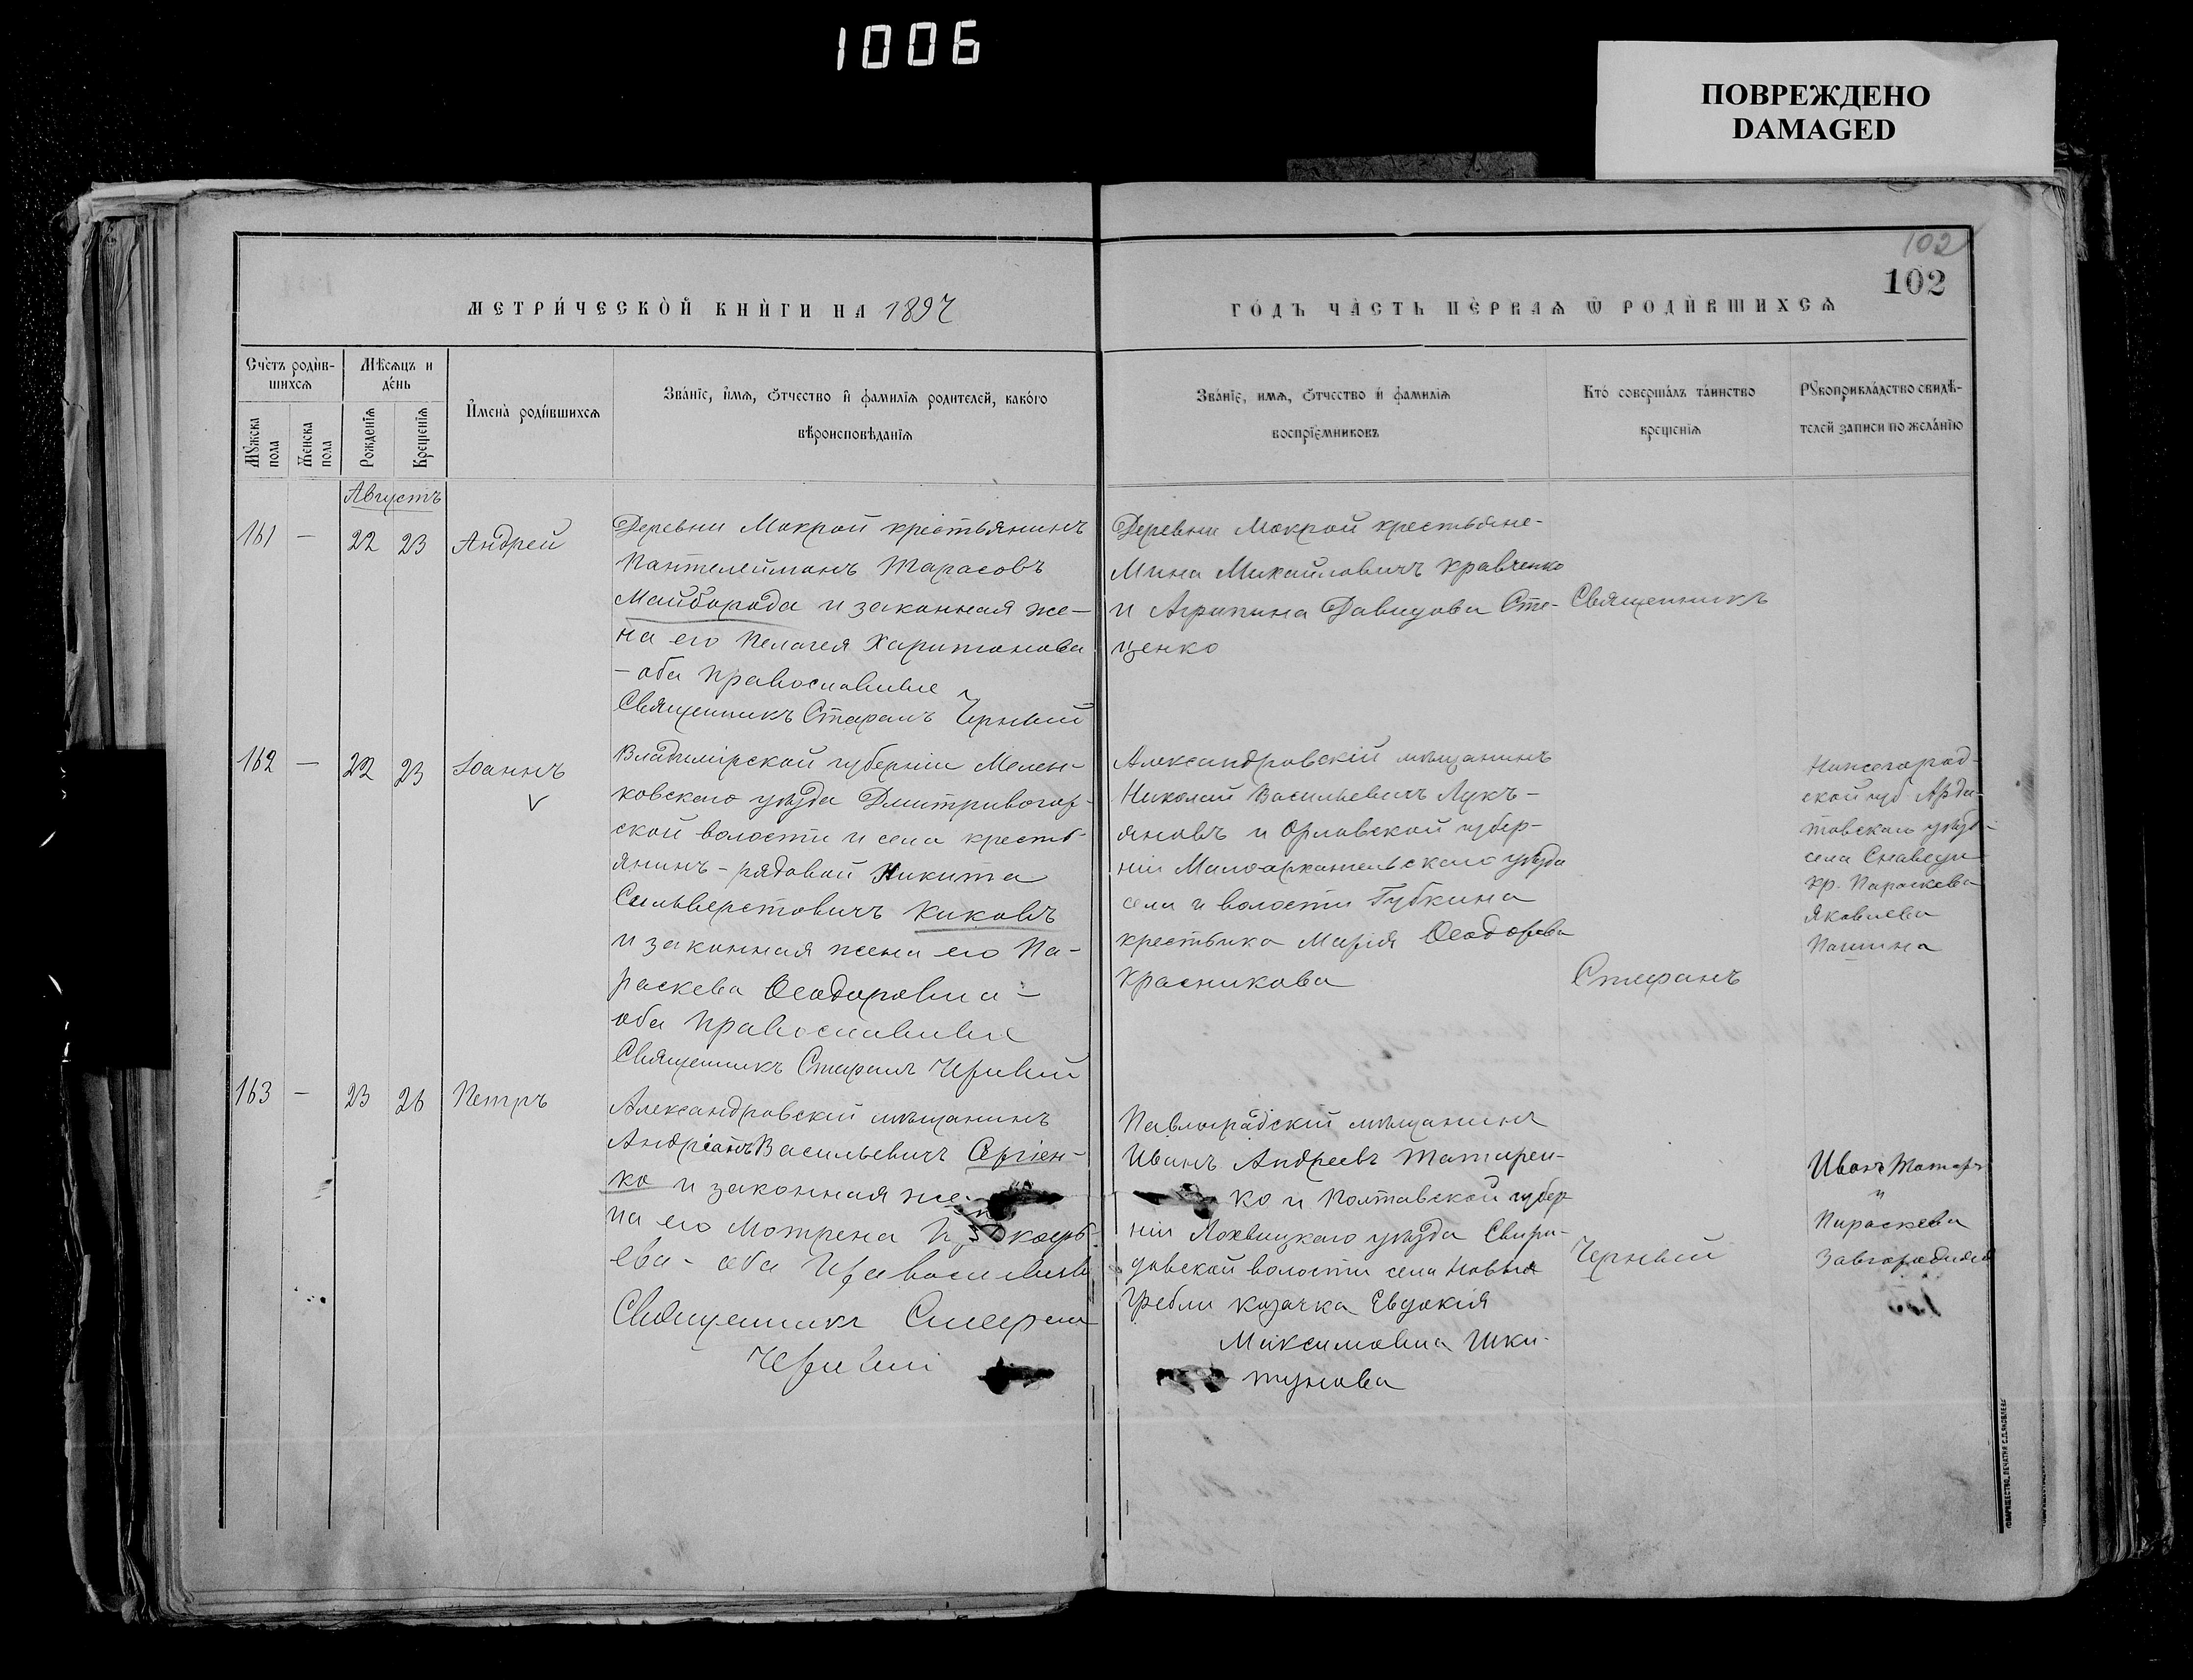 1006
ПОВРЕЖДЕНО
DAMAGED
102
102
МЕТРИ́ЧЕСКОЙ КНИ́ГИ НА 1897
ГО́ДЪ ЧА́СТЬ ПЕ́РВАѦ Ѡ РОДИ́ВШИХСѦ
Сче́тъ роди́в-
шихсѧ
Мѣ́сѧцъ и
де́нь
Мꙋ́жска пола
Же́нска пола
Рожденїѧ
Крещенїѧ
И҆мена̀ роди́вшихсѧ
Зва́нїе, и҆́мѧ, ѻ҆́тчество и҆ фами́лїѧ роди́телей, како́го
вѣроисповѣ́данїѧ
Зва́нїе, имѧ, ѻ҆́тчество и҆ фами́лїѧ
воспрїе́мниковъ
Кто̀ соверша́лъ та́инство
креще́нїѧ
Рꙋкоприкла́дство свидѣ́-
телей записи по жела́нїю
Августъ
161 — 22 23 Андрей
Деревни Мокрой крестьянинъ
Пантелеймонъ Тарасовъ
Майборода и законная же-
на его Пелагея Харитонова
- оба православные
Священникъ Стефанъ Черный
Деревни Мокрой крестьяне-
Мина Михайловичъ Кравченко
и Агрипина Давидова Сте-
ценко
Священникъ
162 — 22 23 Іоаннъ
Владимірской губерніи Мелен-
ковскаго уѣзда Дмитривогор-
ской волости и села кресть-
янинъ - рядовой Никита
Сильверстовичъ Киковъ
и законная жена его Па-
раскева Ѳеодоровна -
оба православные
Священникъ Стефанъ Черный
Александровскій мѣщанинъ
Николай Васильевичъ Лукъ-
яновъ и Орловской губер-
ніи Малоархангельскаго уѣзда
села и волости Губкина
крестьянка Марія Ѳеодорова
Красникова
Стефанъ
Нижегород-
ской губ Арда-
товскаго уѣзд
села
кр. Параскева
Яковлева
163 — 23 26 Петръ
Александровскій мѣщанинъ
Андріанъ Васильевичъ Сергіен-
ко и законная же-
на его Мотрена Прокофь-
ева - оба Православные
Священникъ Стефанъ
Черный
Павлоградскій мѣщанинъ
Иванъ Андреевъ Татарен-
ко и Полтавской губер
ніи Лохвицкаго уѣзда Свири-
довской волости села Новыя
Гребли козачка Евдокія
Максимовна Шка-
тунова
Черный
Иванъ Татар
и
Параскева
Завгородняя